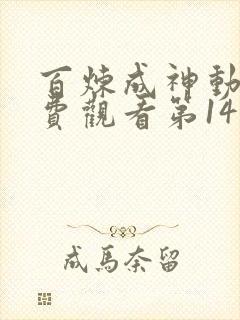 百煉成神動
費觀看第14
成馬奈留